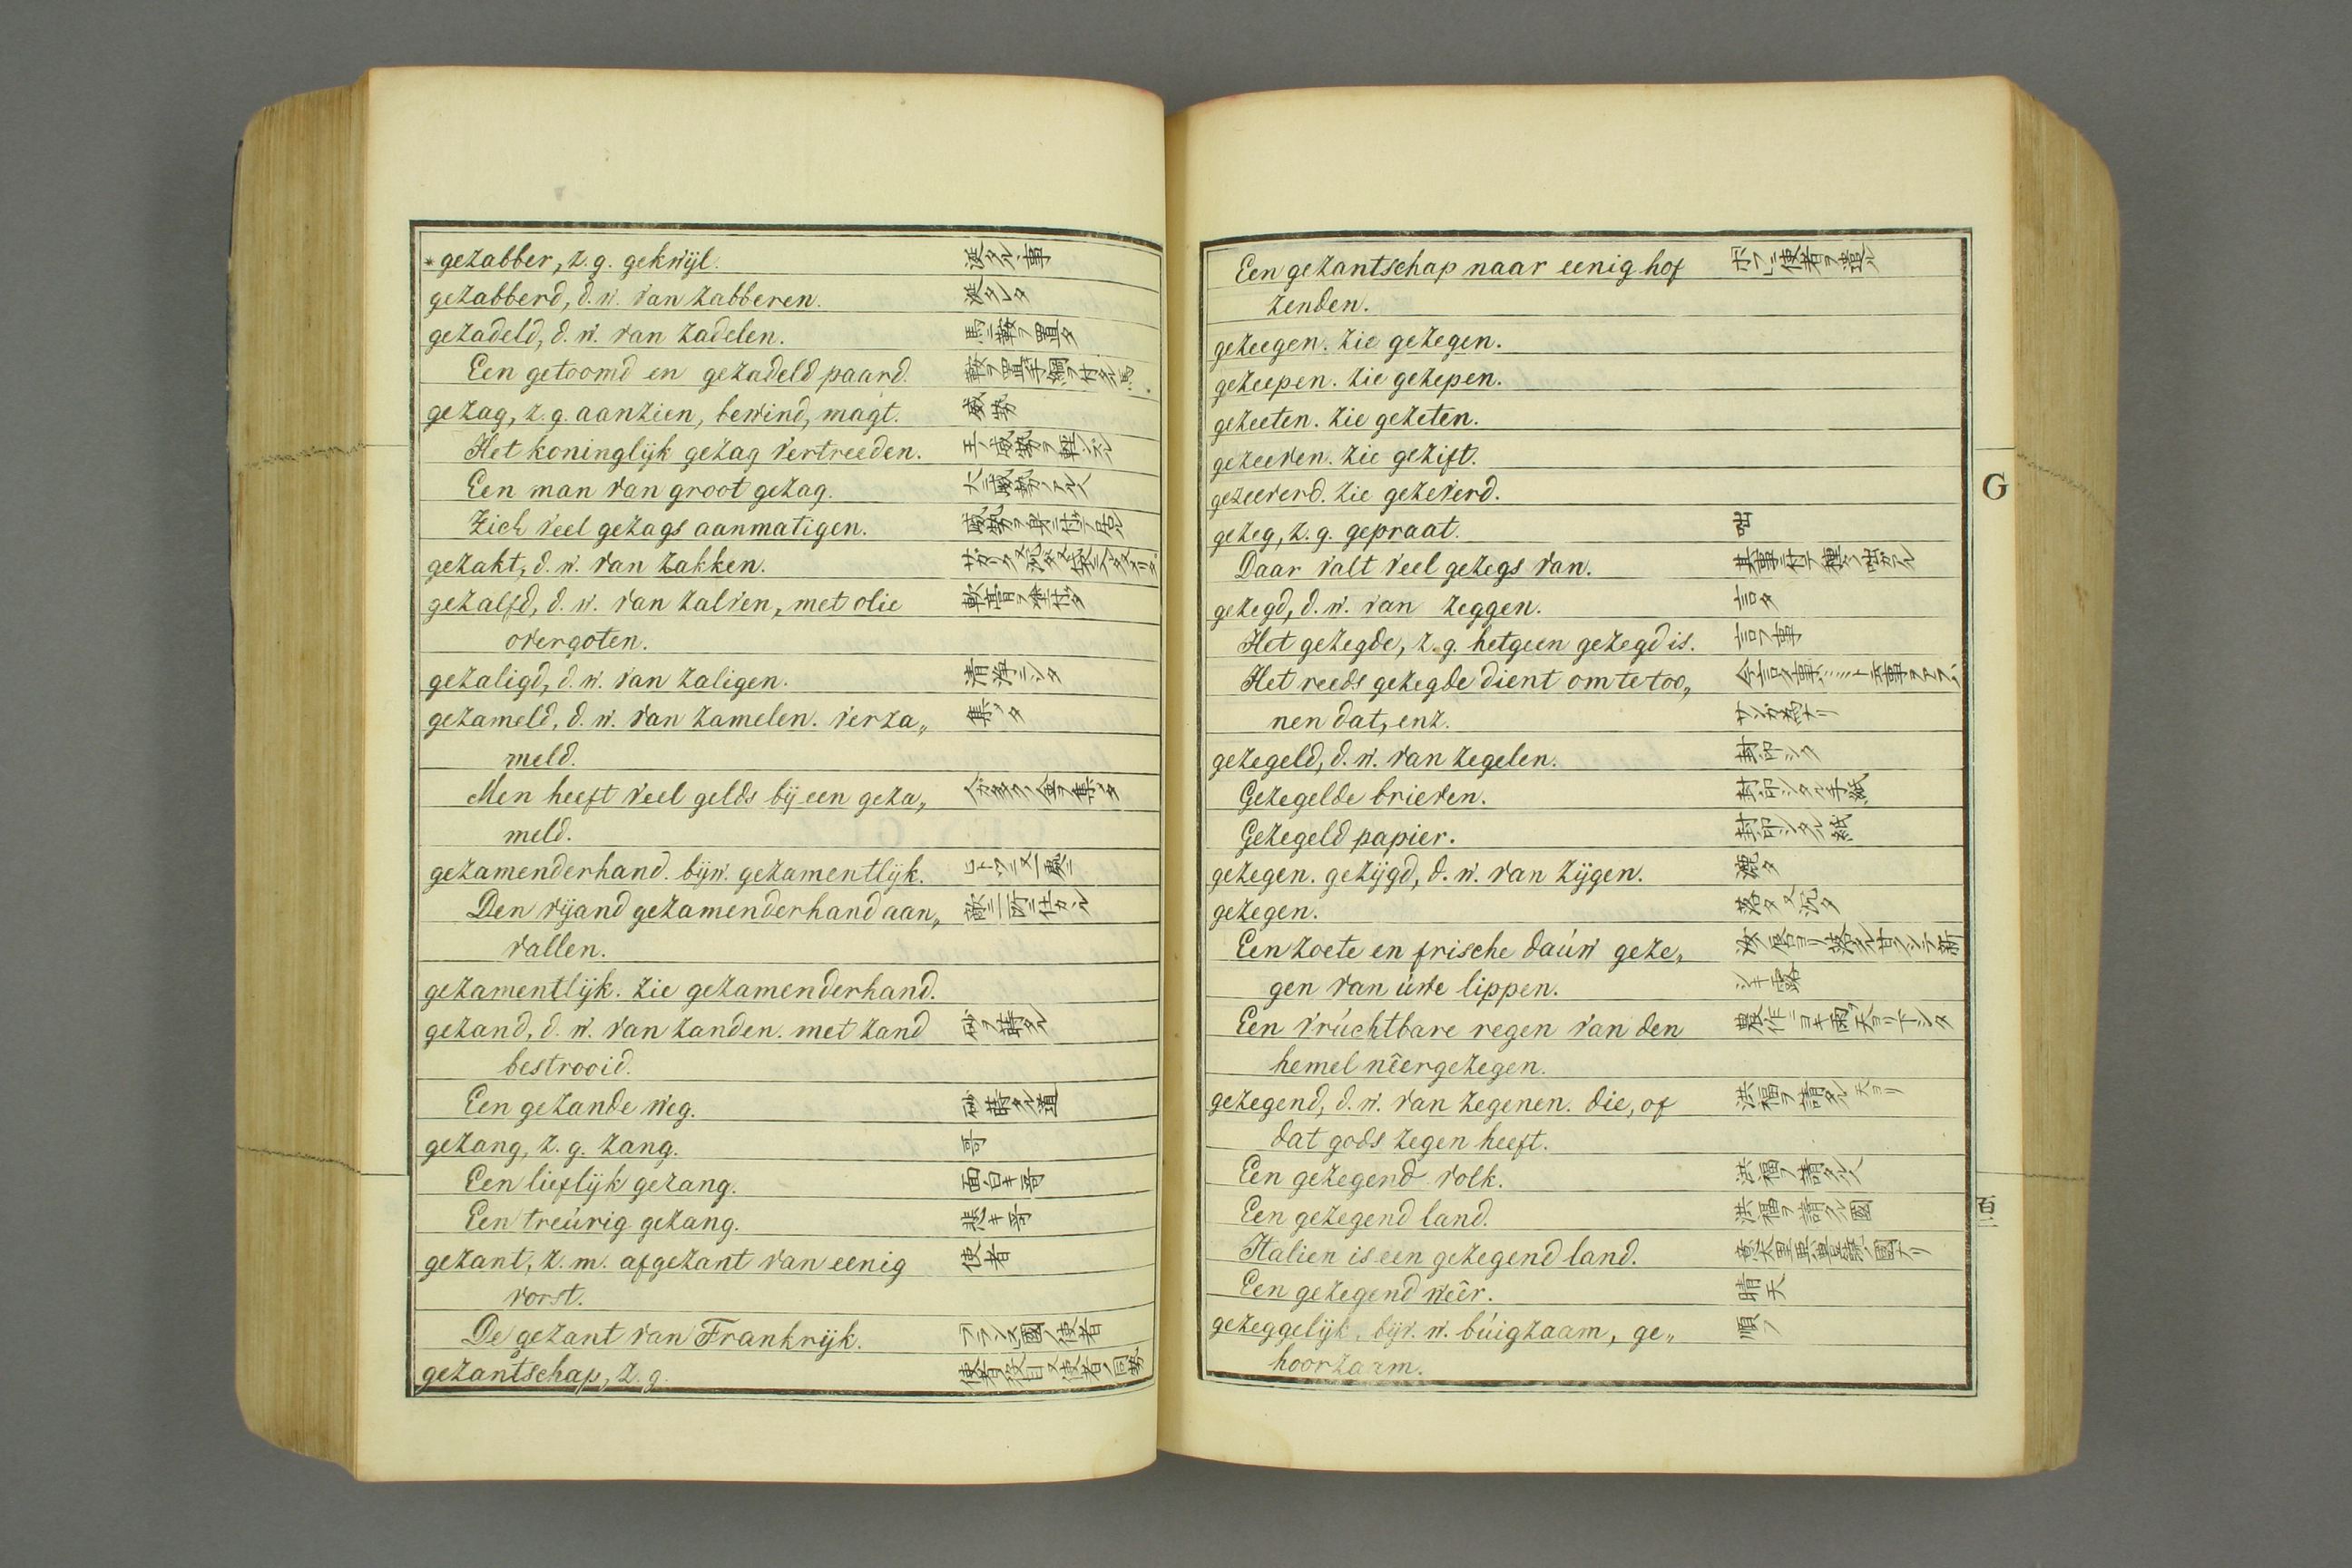 *gezabber, z. g. gekwijl. 涎タル事
gezabberd, d. w. van zabberen. 涎タレタ
gezadeld, d. w. van zadelen. 馬ニ鞍ヲ置タ
Een getoomd en gezadeld paard. 鞍ヲ置手綱ヲ付タル馬
gezag, z. g. aanzien, bewind, magt. 威勢
Het koninglijk gezag vertreeden. 王ノ威勢ヲ軽ンズル
Een man van groot gezag. 大ニ威勢ノアル人
Zich veel gezags aanmatigen.
gezakt, d. w. van zakken.
gezalfd, d. w. van zalven, met olie
overgoten.
gezaligd, d. w. van zaligen. 清浄ニシタ
gezameld, d. w. van zamelen. verza„ 集メタ
meld.
Men heeft veel gelds bij een geza„ 人ガ多ク金ヲ集メタ
meld.
gezamenderhand. bijw. gezamentlijk.
Den vijand gezamenderhand aan„
vallen.
gezamentlijk. zie gezamenderhand.
gezand, d. w. van zanden. met zand 砂ヲ蒔タル
bestrooid.
Een gezande weg. 砂蒔タル道
gezang, z. g. zang. 哥
Een lieflijk gezang. 面白キ哥
Een treúrig gezang. 悲キ哥
gezant, z. m. afgezant van eenig 使者
vorst.
De gezant van Frankrijk. フランス國ノ使者
gezantschap, z. g. 使者ノ役目又使者ノ同勢
Een gezantschap naar eenig hof 使者ヲ遣ル
zenden.
gezeegen. zie gezegen.
gezeepen. zie gezepen.
gezeeten. zie gezeten.
gezeeven. zie gezift.
gezeeverd. zie gezeverd.
gezeg, z. g. gepraat. 咄
Daar valt veel gezegs van. 其事ニ付テ種々ノ咄ガアル
gezegd, d. w. van zeggen. 言タ
Het gezegde, z. g. hetgeen gezegd is. 言フ事
Het reeds gezegde dient om te too„
nen dat, enz.
gezegeld, d. w. van zegelen. 封印シタ
Gezegelde brieven. 封印シタル手紙
Gezegeld papier. 封印シタル紙
gezegen. gezijgd, d. w. van zijgen. 漉タ
gezegen. 落タ又沉タ
Een zoete en frische daúw geze„ 汝ノ唇ヨリ落タル甘クシテ新
gen van úwe lippen. シキ露
Een vrúchtbare regen van den 農作ニヨキ雨ガ天ヨリ下シタ
hemel nêergezegen.
gezegend, d. w. van zegenen. die, of 洪福ヲ請タル 天ヨリ
dat gods zegen heeft.
Een gezegend volk. 洪福ヲ請タル人
Een gezegend land. 洪福ヲ請タル國
Italien is een gezegend land. 意太里亜ハ豊饒ノ國ナリ
Een gezegend wêêr. 晴天
gezeggelijk, bijv. w. búigzaam, ge„ 順フ
hoorzaam.
G